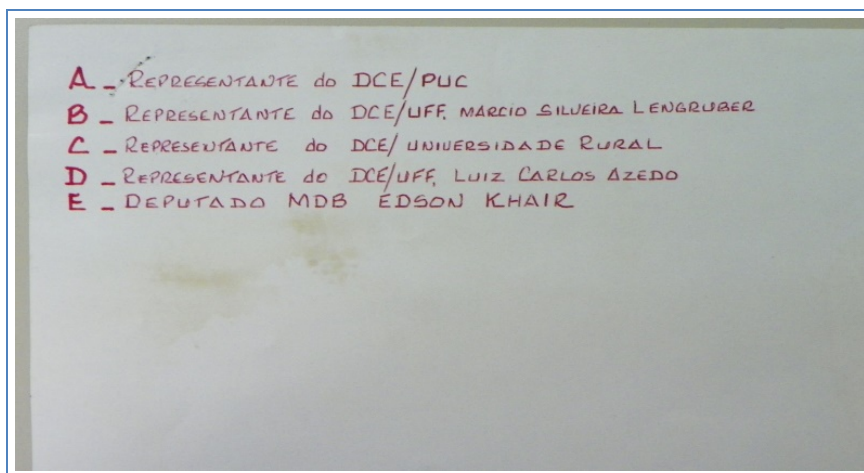 A - REPRESENTANTE do DCE/PUC
B - REPRESENTANTE do DCE/UFF, MARCIO SILVEIRA LENGRUBER
C - REPRESENTANTE do DCE/ UNIVERSIDADE RURAL
D - REPRESENTANTE do DCE/UFF, LUIZ CARLOS AZEDO
E - DEPUTADO MDB EDSON KHAIR